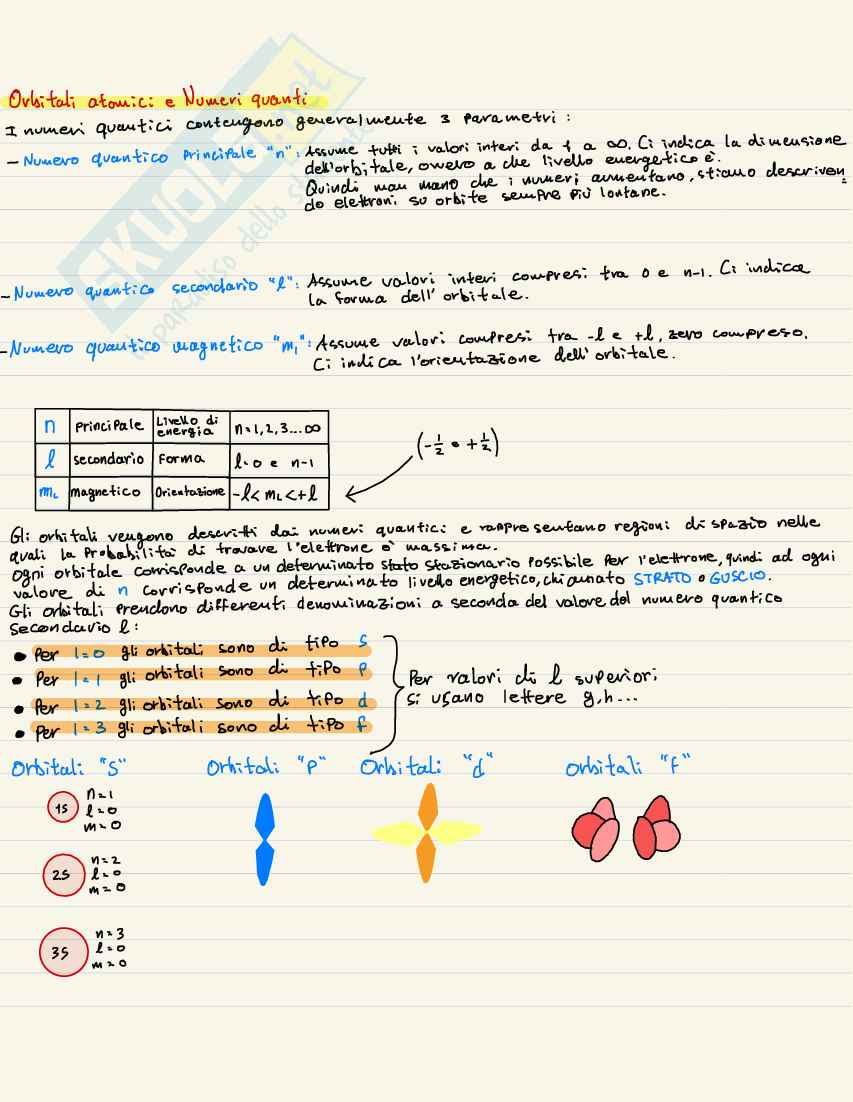 Orbitali atomici e Numeri quanti
I numeri quantici contengono generalmente 3 parametri:
- Numero quantico Principale "n": Assume tutti i valori interi da 1 a ∞. Ci indica la dimensione
dell'orbitale, ovvero a che livello energetico è.
Quindi man mano che i numeri aumentano, stiamo descriven=
do elettroni su orbite sempre più lontane.
- Numero quantico secondario "l": Assume valori interi compresi tra 0 e n-1. Ci indica
la forma dell'orbitale.
- Numero quantico magnetico "m₁": Assume valori compresi tra -l e +l, zero compreso.
Ci indica l'orientazione dell'orbitale.
n Principale Livello di energia n=1,2,3...∞
l secondario Forma l=0 e n-1
mL magnetico Orientazione -l< mL <+l
(-1/2 e +1/2)
Gli orbitali vengono descritti dai numeri quantici e rappresentano regioni di spazio nelle
quali la Probabilità di trovare l'elettrone è massima.
Ogni orbitale corrisponde a un determinato stato stazionario Possibile Per l'elettrone, quindi ad ogni
valore di n corrisponde un determinato livello energetico, chiamato STRATO o GUSCIO.
Gli orbitali Prendono differenti denominazioni a seconda del valore del numero quantico
secondario l:
• Per l=0 gli orbitali sono di tipo s
• Per l=1 gli orbitali sono di tipo p
• Per l=2 gli orbitali sono di tipo d
• Per l=3 gli orbitali sono di tipo f
Per valori di l superiori,
si usano lettere g,h...
Orbitali "S" Orbitali "P" Orbitali "d" Orbitali "F"
1S n=1
l=0
m=0
2S n=2
l=0
m=0
3S n=3
l=0
m=0